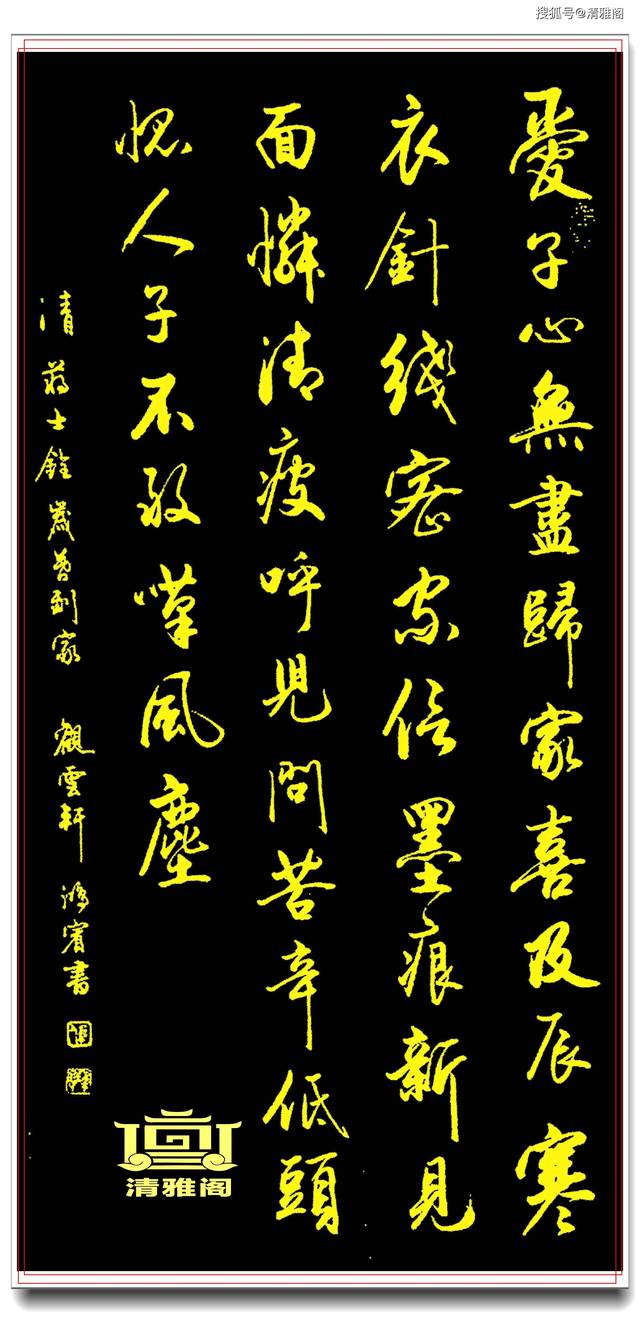 搜狐号@清雅阁
愛子心無盡歸家喜及辰寒
衣針綫密家信墨痕新見
面憐清疲呼兒問苦辛低頭
愧人子不敢嘆風塵
清 蔣士銓 歲暮到家 觀雲軒 鴻賓書
清雅阁